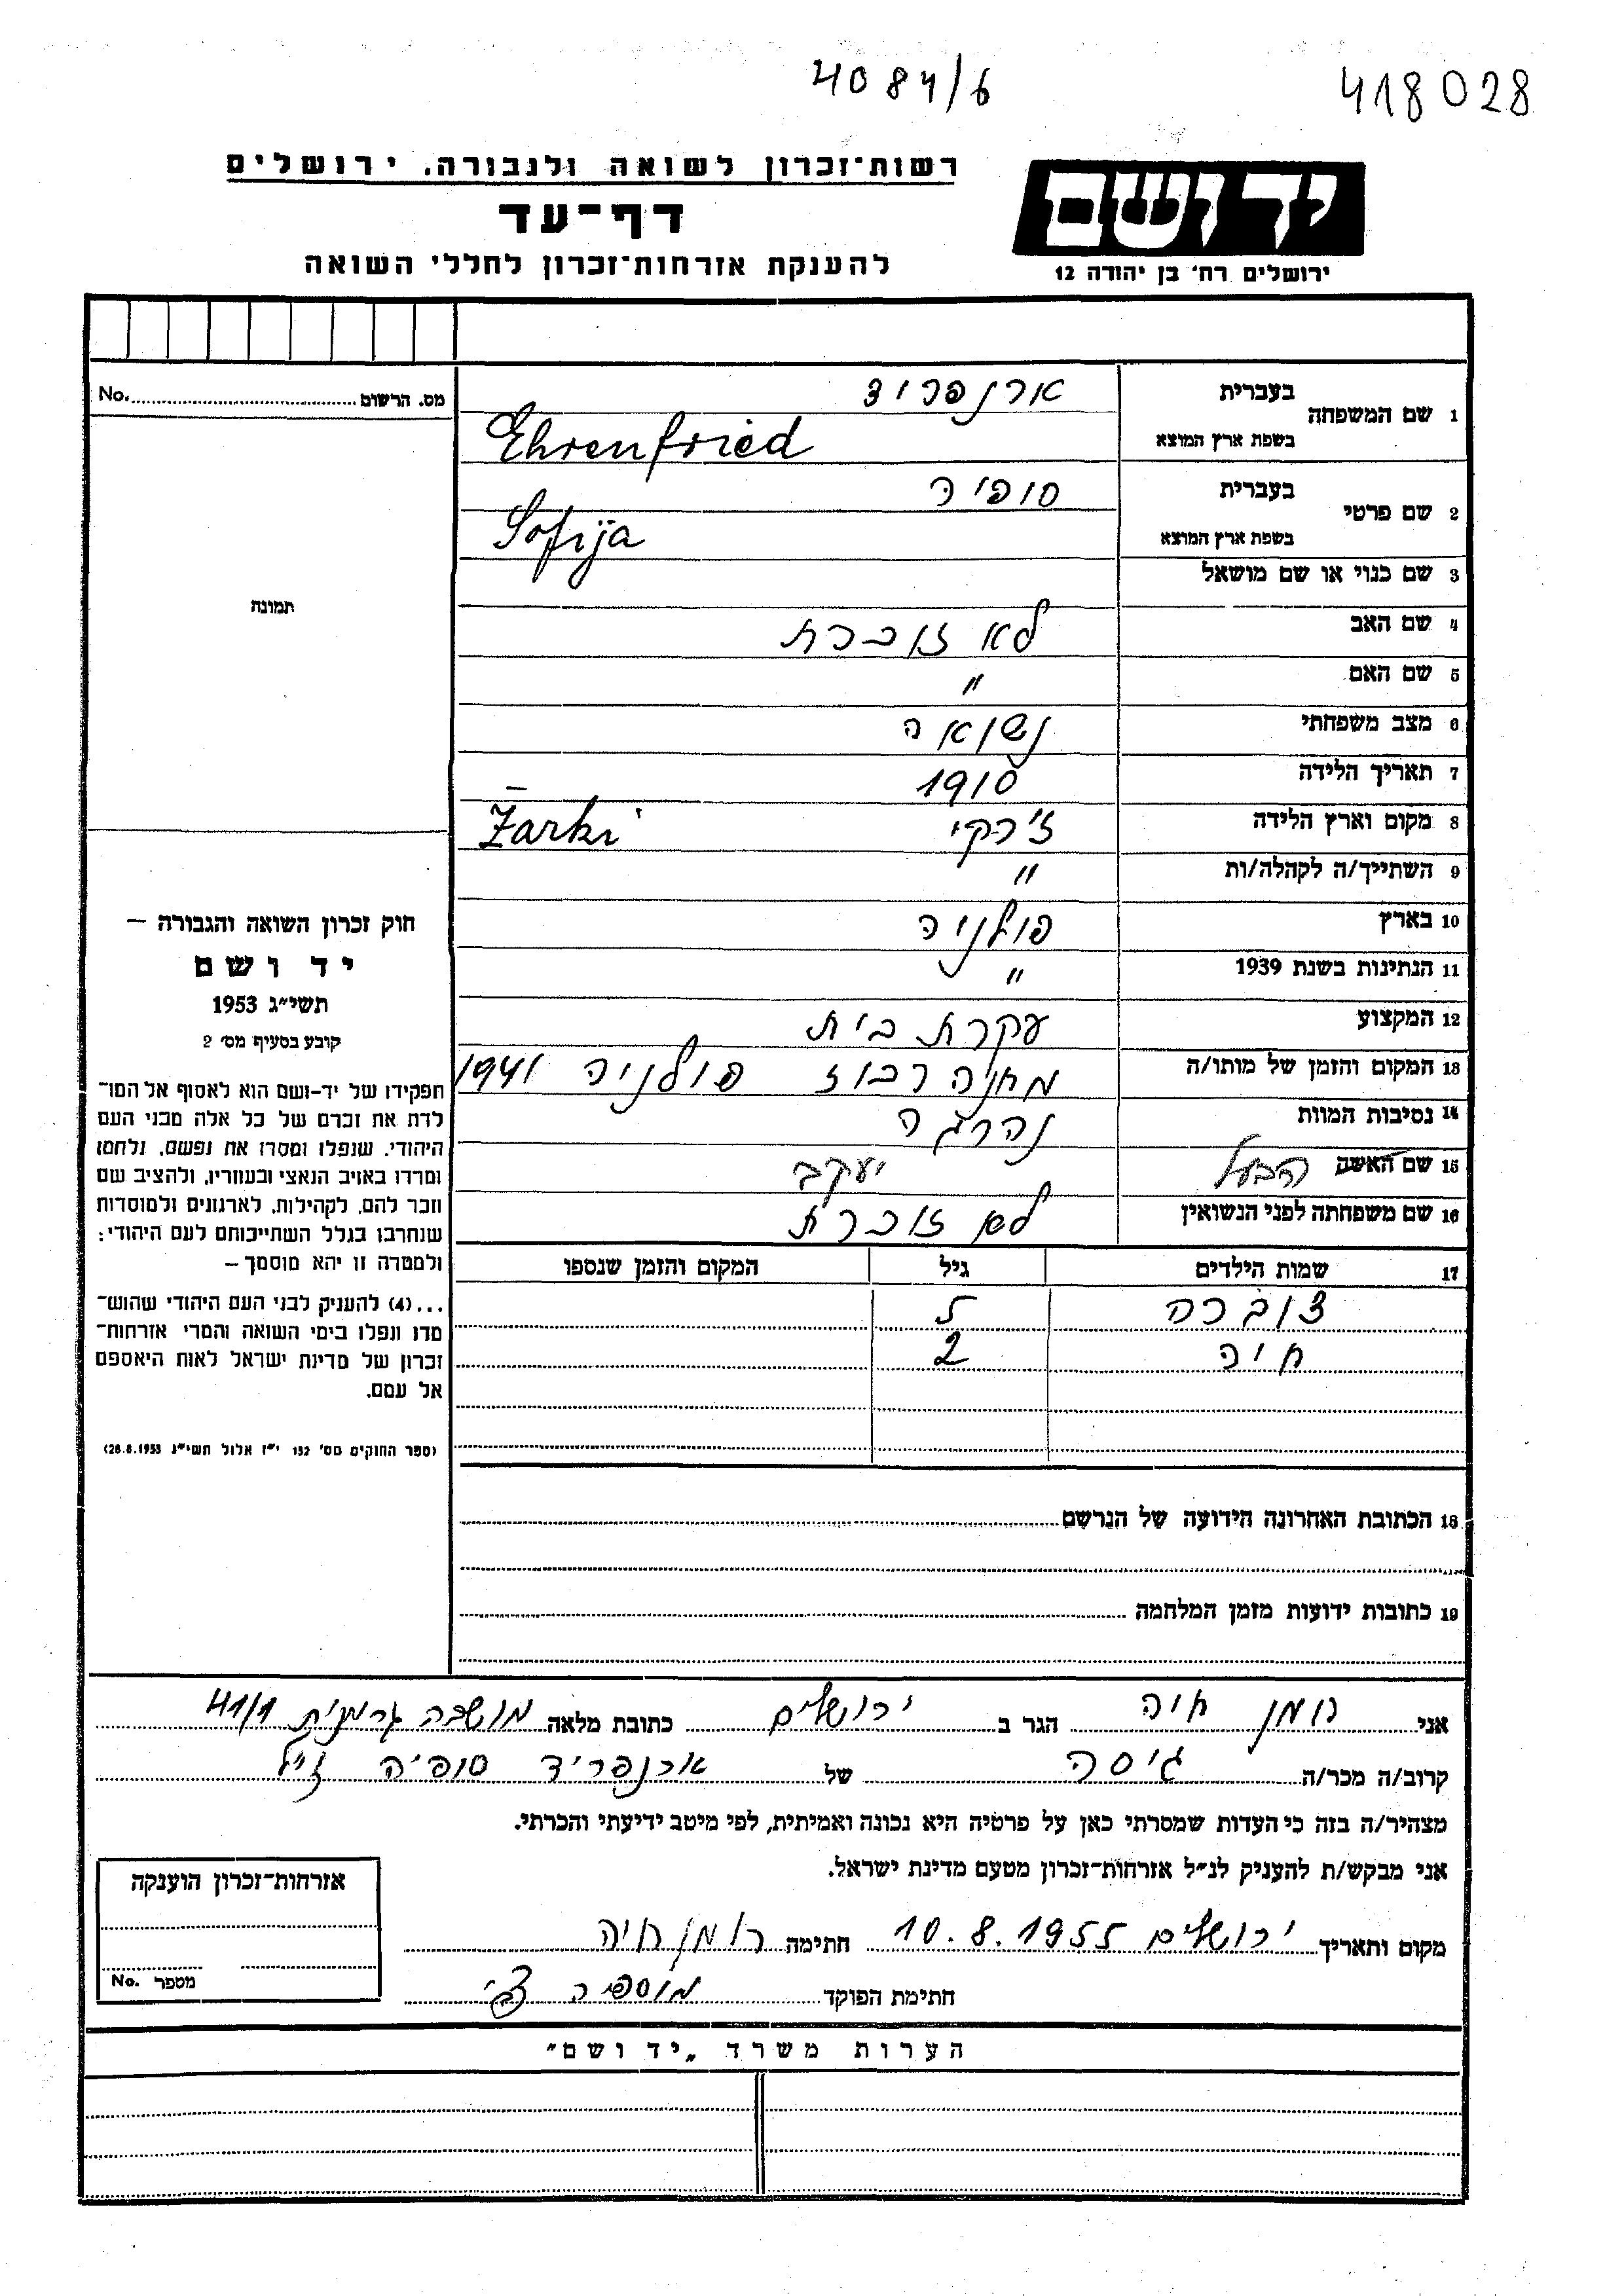 4084/6
418028
רשות־זכרון לשואה ולגבורה. ירושלים
דף־עד
להענקת אזרחות־זכרון לחללי השואה
יד ושם
ירושלים רח' בן יהודה 12
מס. הרשום No.
1 שם המשפחה
בעברית ארנפריד
בשפת ארץ המוצא Ehrenfried
2 שם פרטי
בעברית סופיה
בשפת ארץ המוצא Sofija
3 שם כנוי או שם מושאל
4 שם האב לא זוכרת
5 שם האם "
6 מצב משפחתי נשואה
7 תאריך הלידה 1910
8 מקום וארץ הלידה ז'רקי Żarki
9 השתייך/ה לקהלה/ות "
10 בארץ פולניה
11 הנתינות בשנת 1939 "
12 המקצוע עקרת בית
13 המקום והזמן של מותו/ה מחנה רכוז פולניה 1941
14 נסיבות המוות נהרגה
15 שם האשה הבעל יעקב
16 שם משפחתה לפני הנשואין לא זוכרת
17 שמות הילדים גיל המקום והזמן שנספו
דוברה 5
חיה 2
18 הכתובת האחרונה הידועה של הנרשם
19 כתובות ידועות מזמן המלחמה
תמונה
חוק זכרון השואה והגבורה –
יד ושם
תשי"ג 1953
קובע בסעיף מס' 2
תפקידו של יד-ושם הוא לאסוף אל המו־
לדת את זכרם של כל אלה מבני העם
היהודי, שנפלו ומסרו את נפשם, נלחמו
ומרדו באויב הנאצי ובעוזריו, ולהציב שם
וזכר להם, לקהילות, לארגונים ולמוסדות
שנחרבו בגלל השתייכותם לעם היהודי;
ולמטרה זו יהא מוסמך –
...(4) להעניק לבני העם היהודי שהוש־
מדו ונפלו בימי השואה והמרי אזרחות־
זכרון של מדינת ישראל לאות היאספם
אל עמם.
(ספר החוקים מס' 132 י"ז אלול תשי"ג 28.8.1953)
אני רומן חיה הגר ב ירושלים כתובת מלאה מושבה גרמנית 41/1
קרוב/ה מכר/ה גיסה של ארנפריד סופיה ז"ל
מצהיר/ה בזה כי העדות שמסרתי כאן על פרטיה היא נכונה ואמיתית, לפי מיטב ידיעתי והכרתי.
אני מבקש/ת להעניק לנ"ל אזרחות-זכרון מטעם מדינת ישראל.
מקום ותאריך ירושלים 10.8.1955 חתימה רומן חיה
חתימת הפוקד
אזרחות-זכרון הוענקה
מספר No.
הערות משרד „יד ושם"